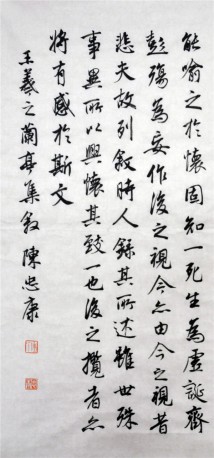 能喻之於懷固知一死生為虛誕齊
彭殤為妄作後之視今亦由今之視昔
悲夫故列敘時人錄其所述雖世殊
事異所以興懷其致一也後之攬者亦
將有感於斯文
王羲之蘭亭集敘 陳忠康